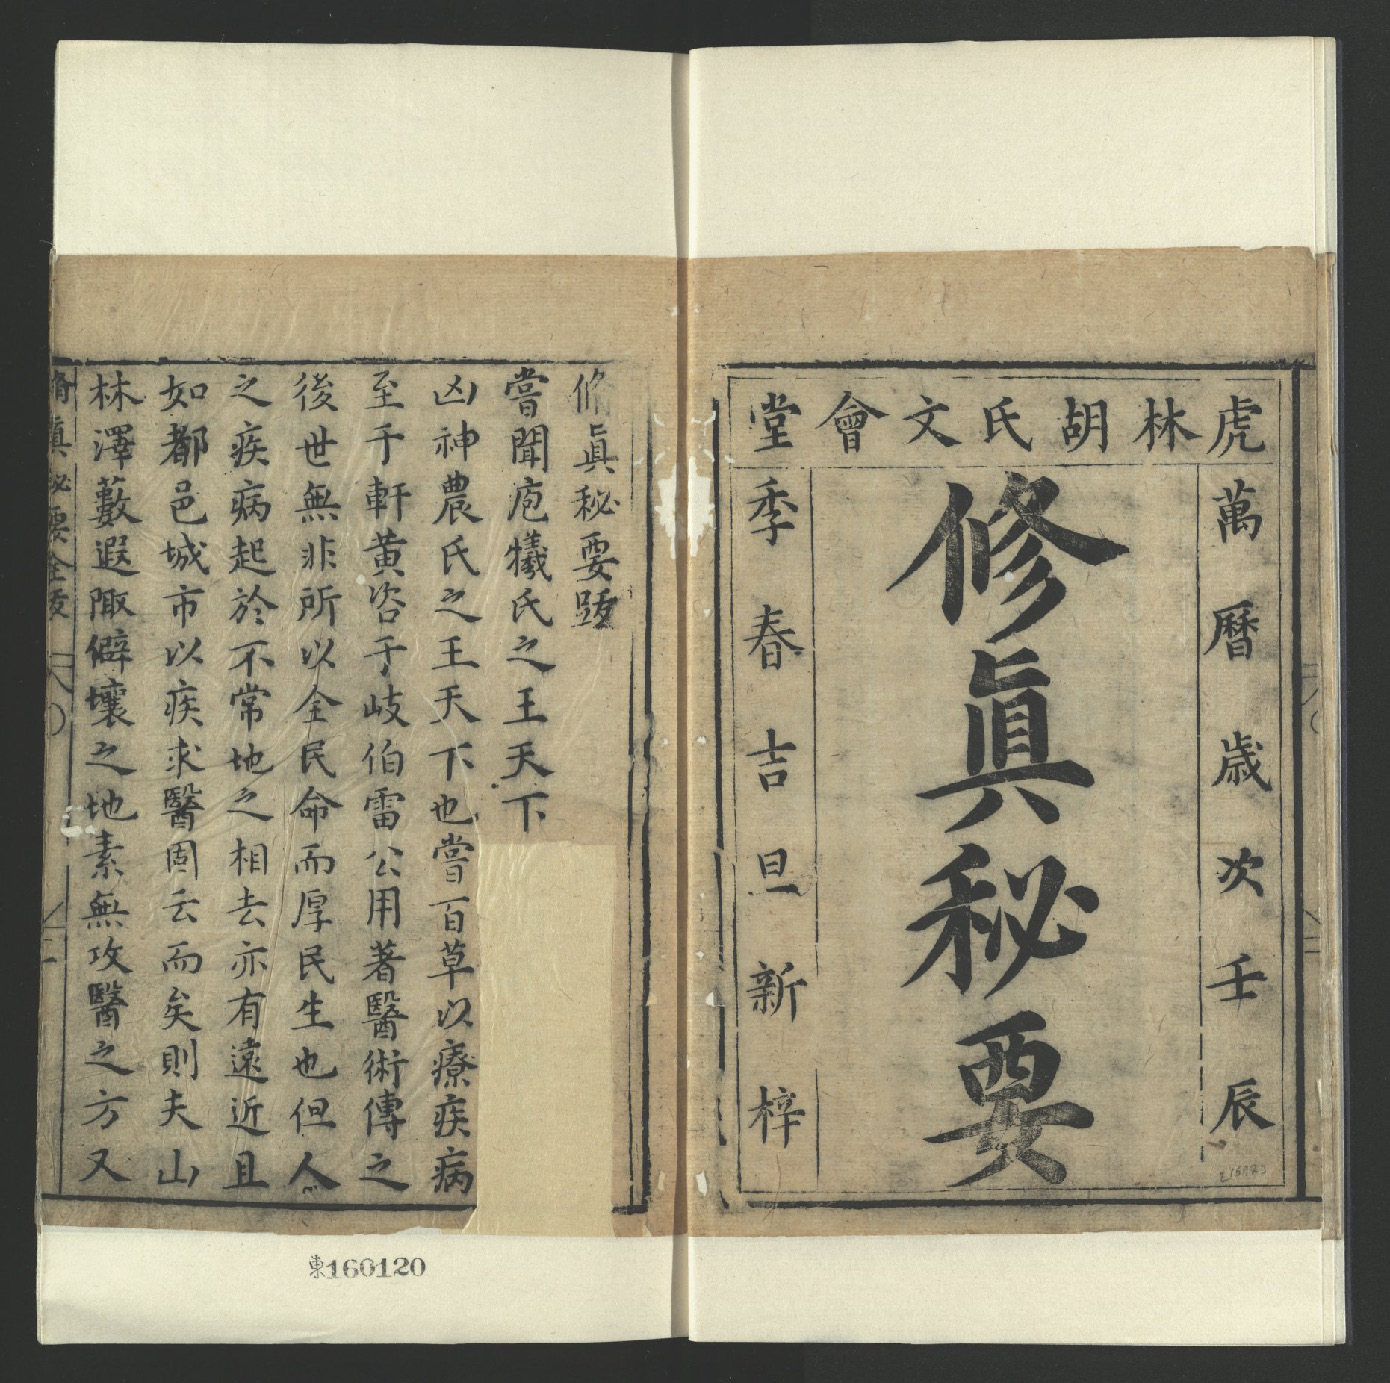 虎林胡氏文會堂
萬曆歲次壬辰
修眞秘要
季春吉旦新梓
修眞秘要跋
嘗聞庖犧氏之王天下
凶神農氏之王天下也嘗百草以療疾病
至于軒黃咨于岐伯雷公用著醫術傳之
後世無非所以全民命而厚民生也但人
之疾病起於不常地之相去亦有遠近且
如都邑城市以疾求醫固云而矣則夫山
林澤藪遐陬僻壤之地素無攻醫之方又
脩眞秘要全
東160120